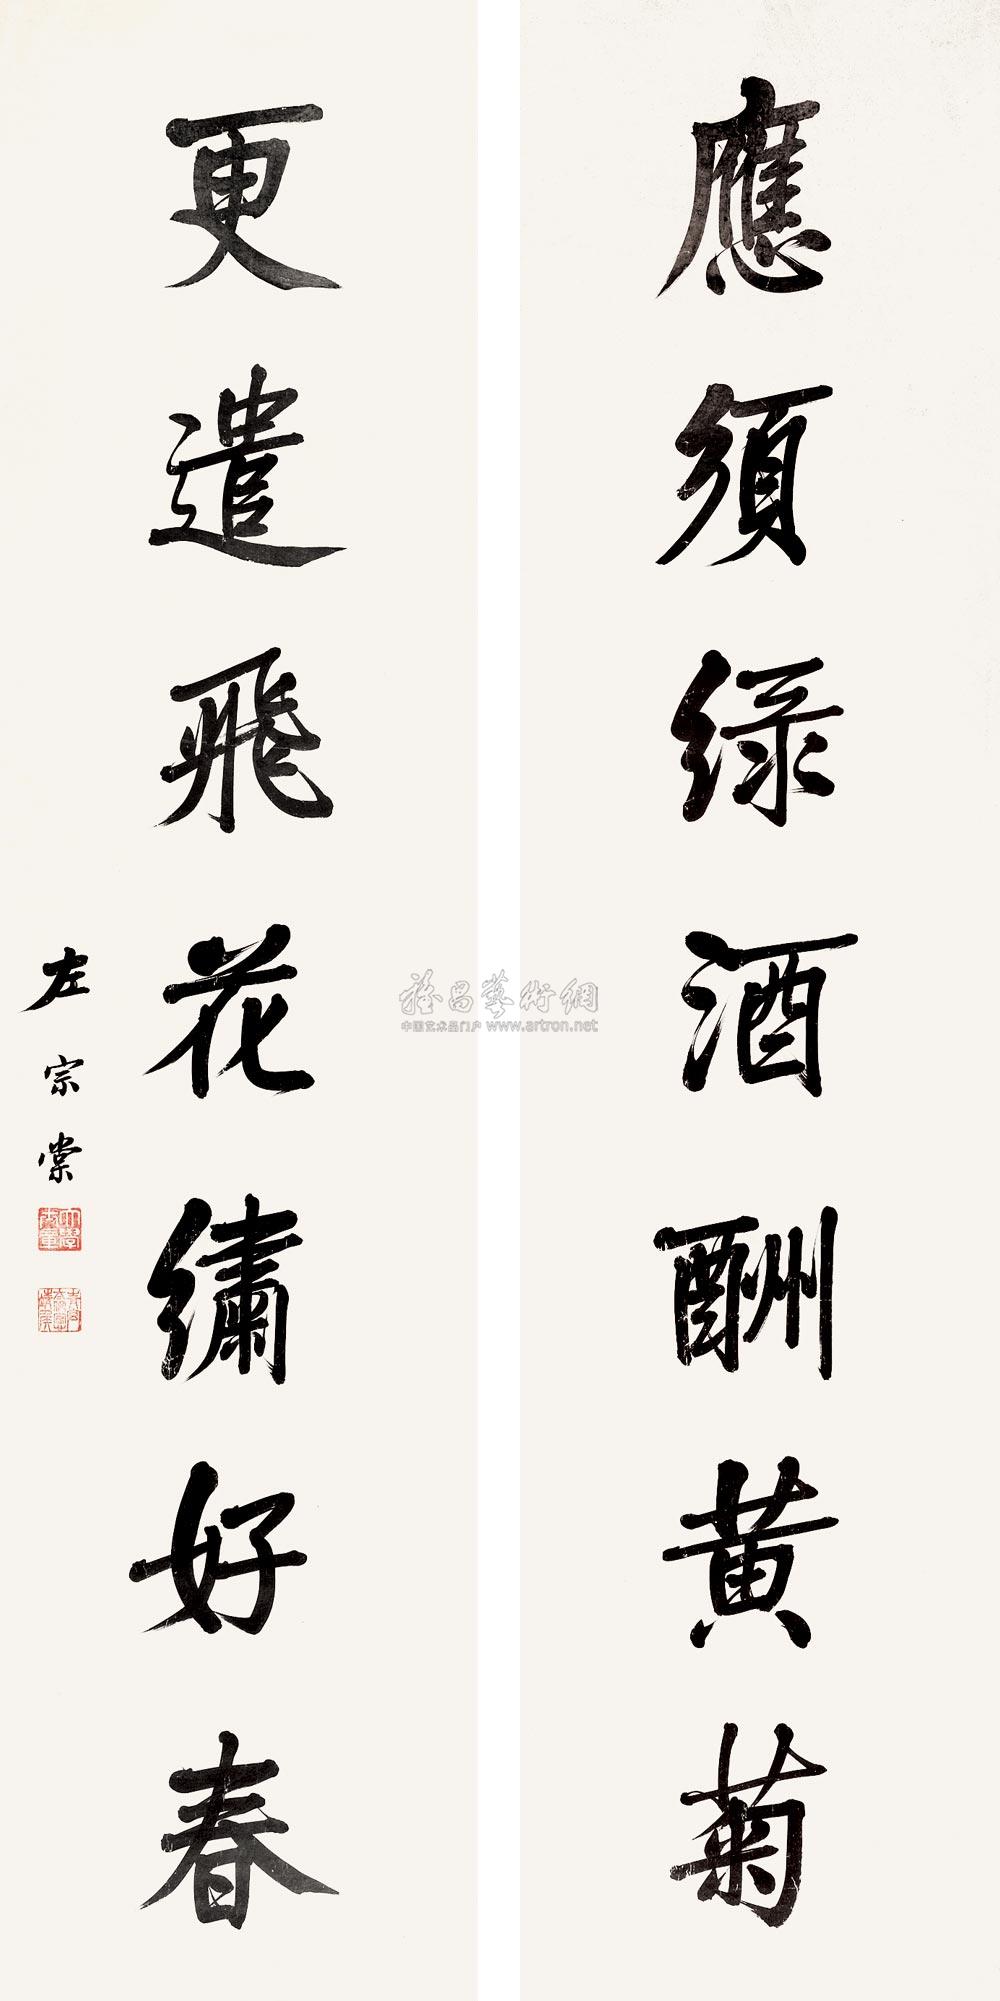 應須綠酒酬黃菊
更遣飛花繡好春
左宗棠
雅昌藝術網
中国艺术品门户 www.artron.net